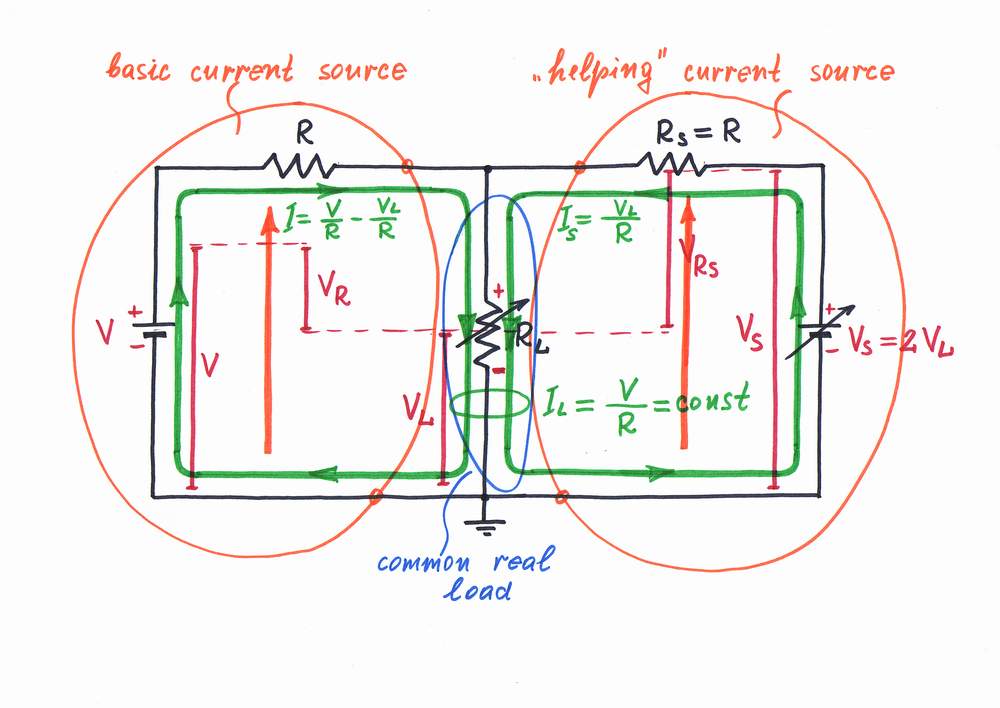 basic current source
„helping" current source
R
Rs = R
I = V/R - VL/R
Is = VL/R
VR
VRs
+
V
-
V
+
RL
-
VL
Vs
+
-
Vs = 2VL
IL = V/R = const
common real
load